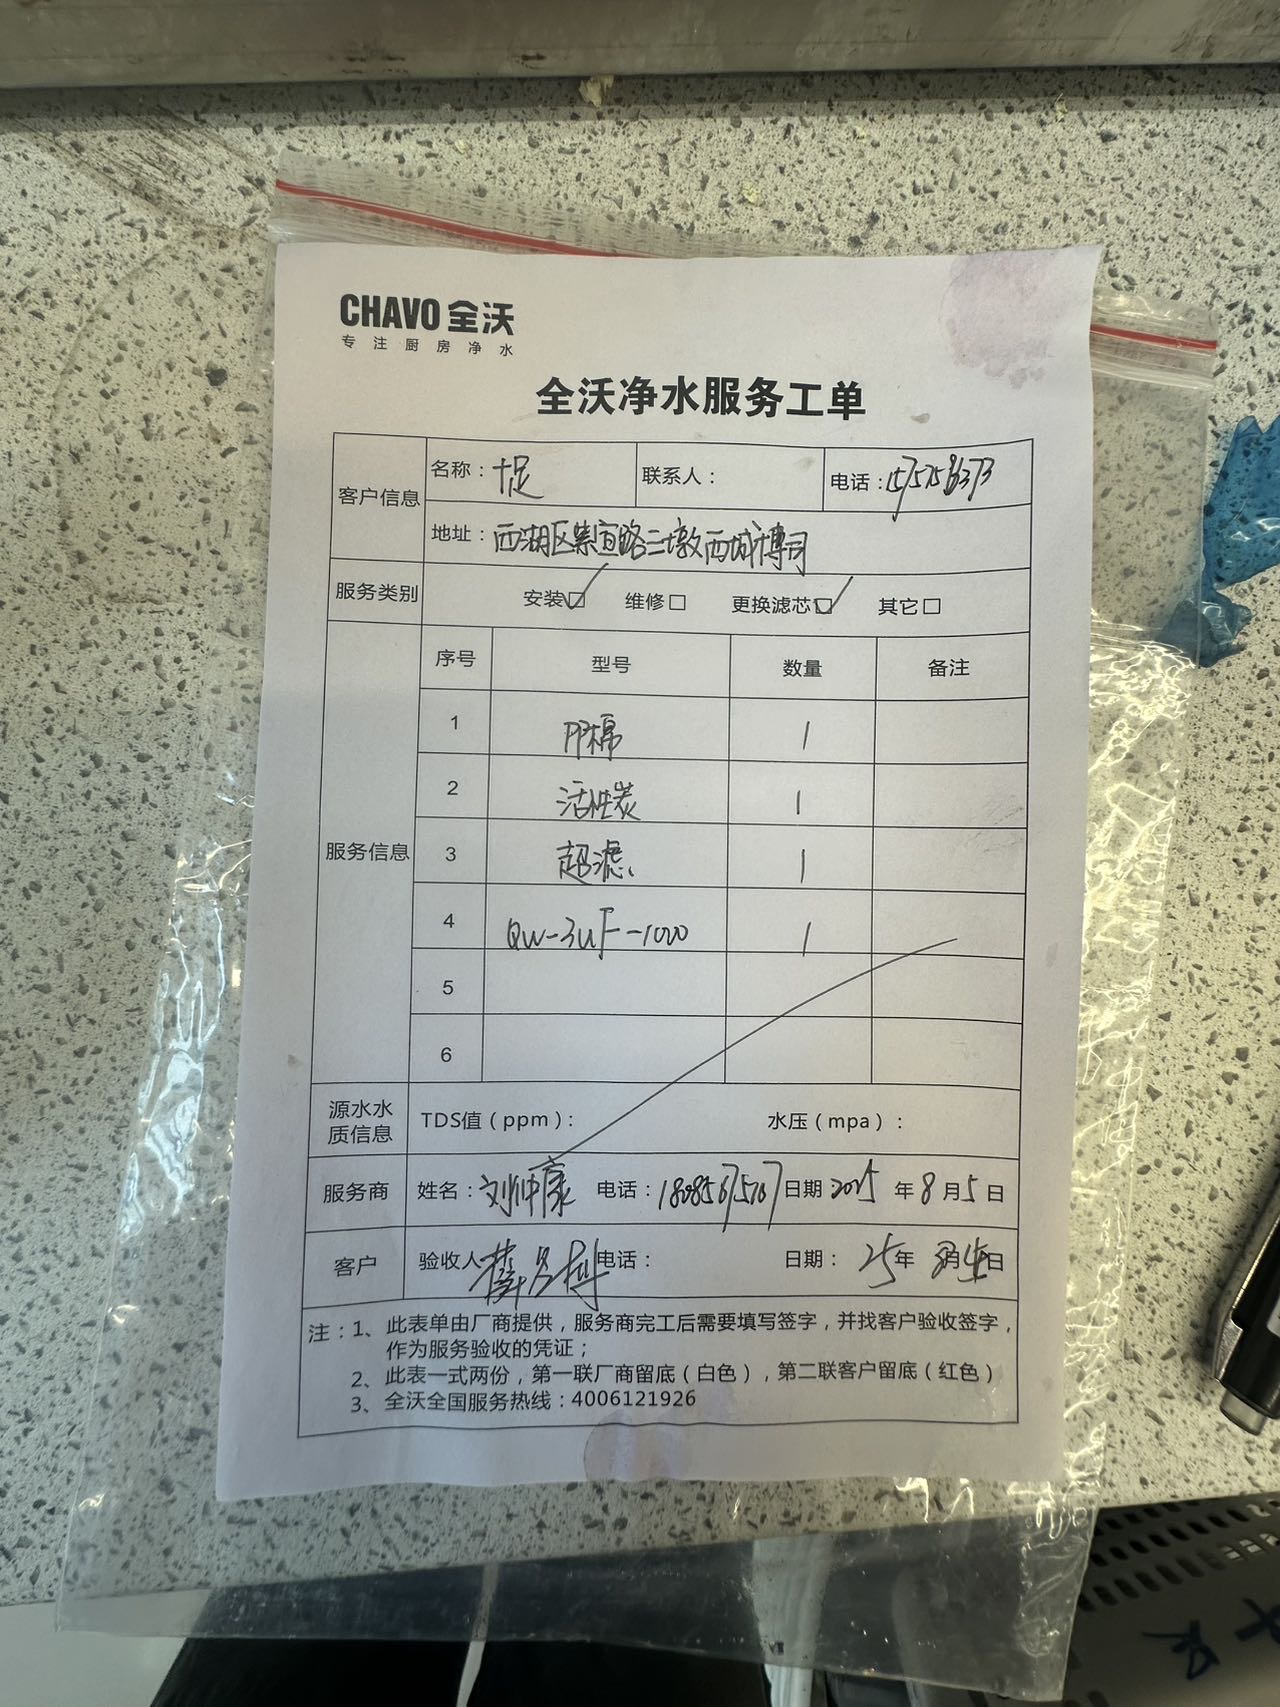 CHAVO 全沃
专注厨房净水
全沃净水服务工单
客户信息 名称：十足 联系人： 电话：
地址：西湖区紫宣路三墩西城博司
服务类别 安装☑ 维修□ 更换滤芯☑ 其它□
服务信息 序号 型号 数量 备注
1 PP棉 1
2 活性炭 1
3 超滤 1
4 QW-3UF-1000 1
5
6
源水水质信息 TDS值（ppm）： 水压（mpa）：
服务商 姓名：刘仲康 电话：18085675767 日期 2025 年 8 月 5 日
客户 验收人 电话： 日期： 25年 8月 5日
注：1、此表单由厂商提供，服务商完工后需要填写签字，并找客户验收签字，
作为服务验收的凭证；
2、此表一式两份，第一联厂商留底（白色），第二联客户留底（红色）
3、全沃全国服务热线：4006121926